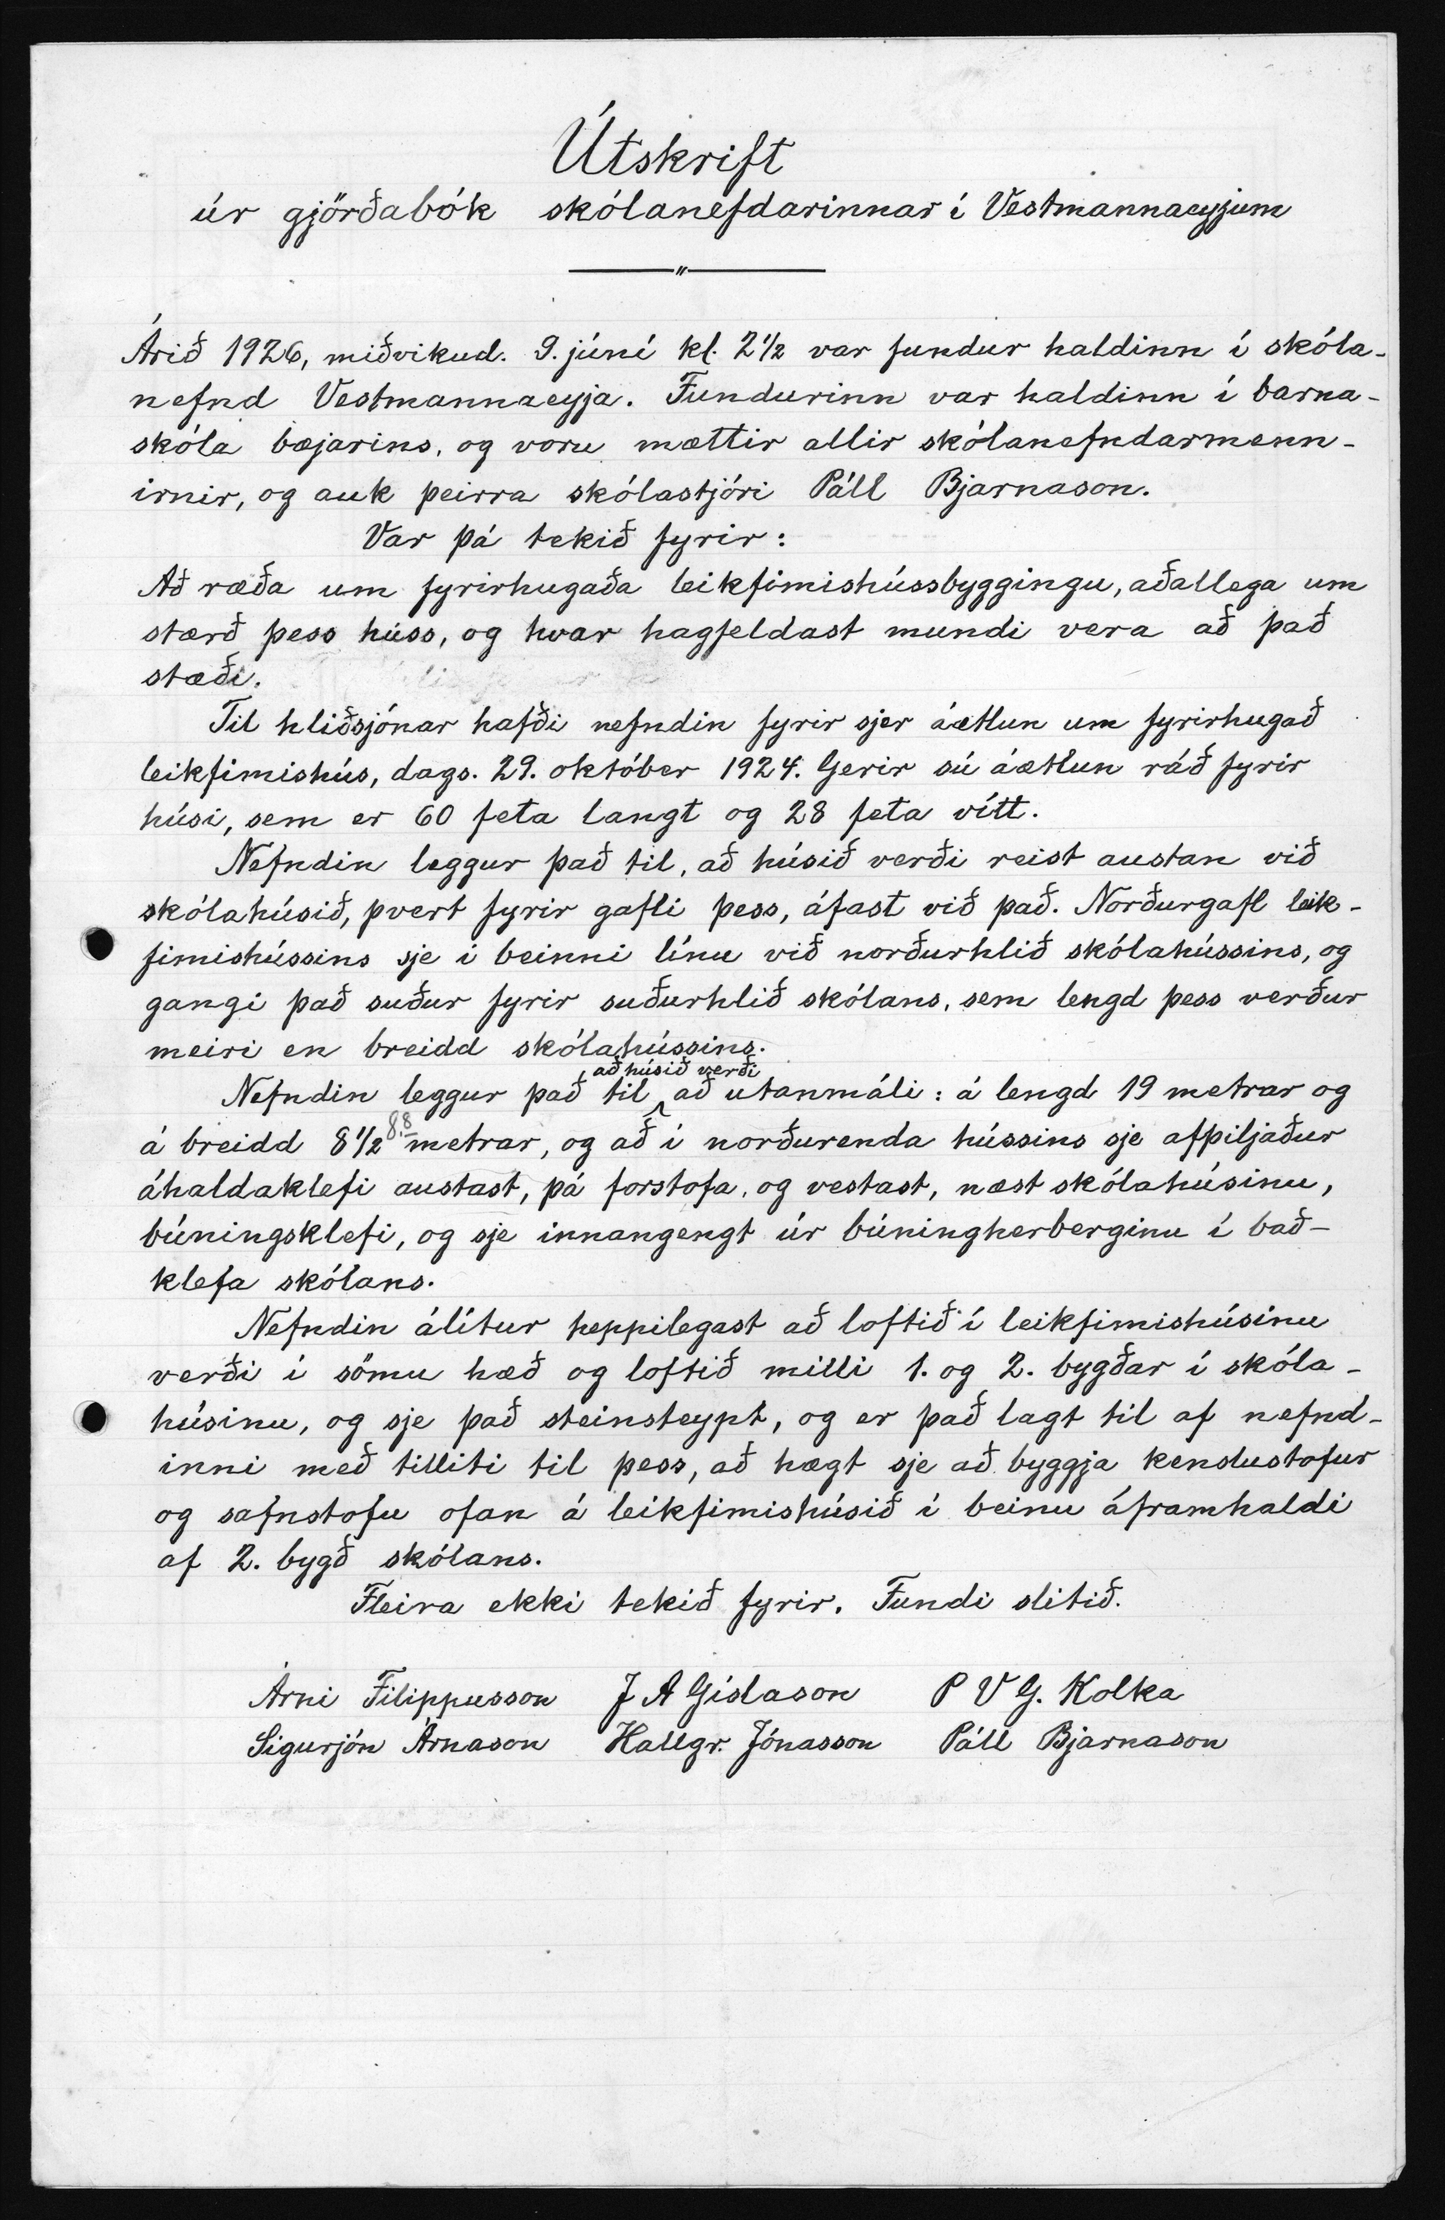 Útskrift
úr gjörðabók skólanefdarinnar í Vestmannaeyjum
Árið 1926, miðvikud. 9. júní kl. 2 1/2 var fundur haldinn í skóla-
nefnd Vestmannaeyja. Fundurinn var haldinn í barna-
skóla bæjarins, og voru mættir allir skólanefndarmenn-
irnir, og auk þeirra skólastjóri Páll Bjarnason.
Var þá tekið fyrir:
Að ræða um fyrirhugaða leikfimishússbyggingu, aðallega um
stærð þess húss, og hvar hagfeldast mundi vera að það
stæði.
Til hliðsjónar hafði nefndin fyrir sjer áætlun um fyrirhugað
leikfimishús, dags. 29. október 1924. Gerir sú áætlun ráð fyrir
húsi, sem er 60 feta langt og 28 feta vítt.
Nefndin leggur það til, að húsið verði reist austan við
skólahúsið, þvert fyrir gafli þess, áfast við það. Norðurgafl leik-
fimishússins sje í beinni línu við norðurhlið skólahússins, og
gangi það suður fyrir suðurhlið skólans, sem lengd þess verður
meiri en breidd skólahússins.
að húsið verði
Nefndin leggur það til að utanmáli: á lengd 19 metrar og
á breidd 8 1/2 8,8 metrar, og að í norðurenda hússins sje afþiljaður
áhaldaklefi austast, þá forstofa, og vestast, næst skólahúsinu,
búningsklefi, og sje innangengt úr búningherberginu í bað-
klefa skólans.
Nefndin álítur heppilegast að loftið í leikfimishúsinu
verði í sömu hæð og loftið milli 1. og 2. bygðar í skóla-
húsinu, og sje það steinsteypt, og er það lagt til af nefnd-
inni með tilliti til þess, að hægt sje að byggja kenslustofur
og safnstofu ofan á leikfimishúsið í beinu áframhaldi
af 2. bygð skólans.
Fleira ekki tekið fyrir. Fundi slitið.
Árni Filippusson J A Gíslason P V G. Kolka
Sigurjón Árnason Hallgr. Jónasson Páll Bjarnason